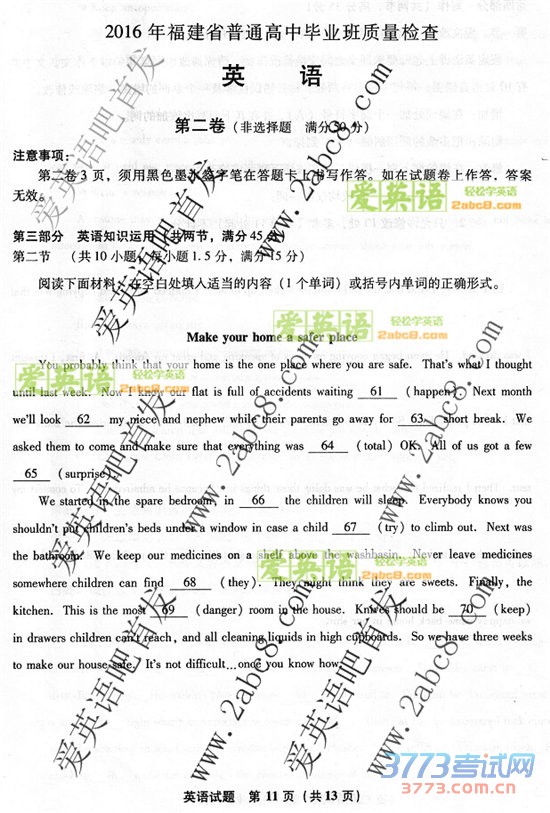 2016 年福建省普通高中毕业班质量检查
英 语
第二卷（非选择题 满分50分）
注意事项：
第二卷3页，须用黑色墨水签字笔在答题卡上书写作答。如在试题卷上作答，答案
无效。
第三部分 英语知识运用（共两节，满分45分）
第二节 （共10小题；每小题1.5分，满分15分）
阅读下面材料，在空白处填入适当的内容（1个单词）或括号内单词的正确形式。
Make your home a safer place
You probably think that your home is the one place where you are safe. That's what I thought
until last week. Now I know our flat is full of accidents waiting 61 (happen). Next month
we'll look 62 my niece and nephew while their parents go away for 63 short break. We
asked them to come and make sure that everything was 64 (total) OK. All of us got a few
65 (surprise).
We started in the spare bedroom, in 66 the children will sleep. Everybody knows you
shouldn't put children's beds under a window in case a child 67 (try) to climb out. Next was
the bathroom. We keep our medicines on a shelf above the washbasin. Never leave medicines
somewhere children can find 68 (they). They might think they are sweets. Finally, the
kitchen. This is the most 69 (danger) room in the house. Knives should be 70 (keep)
in drawers children can't reach, and all cleaning liquids in high cupboards. So we have three weeks
to make our house safe. It's not difficult…once you know how.
英语试题 第 11 页（共 13 页）
爱英语吧首发 www.2abc8.com
爱英语吧首发 www.2abc8.com
爱英语吧 轻松学英语 2abc8.com
爱英语吧 轻松学英语 2abc8.com
爱英语吧 轻松学英语 2abc8.com
爱英语吧 轻松学英语 2abc8.com
3773考试网
3773.com.cn